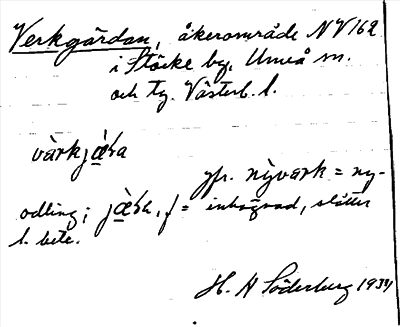 Verkgärdan, åkerområde NV162
i Stöcke by, Umeå sn.
och tg. Västerb. l.
värkjæ̀ɽa
jfr. nỳvark = ny-
odling; jæ̀ɽa, f = inhägnad, slåtter
l. bete.
H. H Söderberg 1934